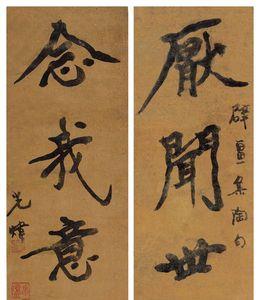 厭聞世
辟畺集陶句
念我意
光煒